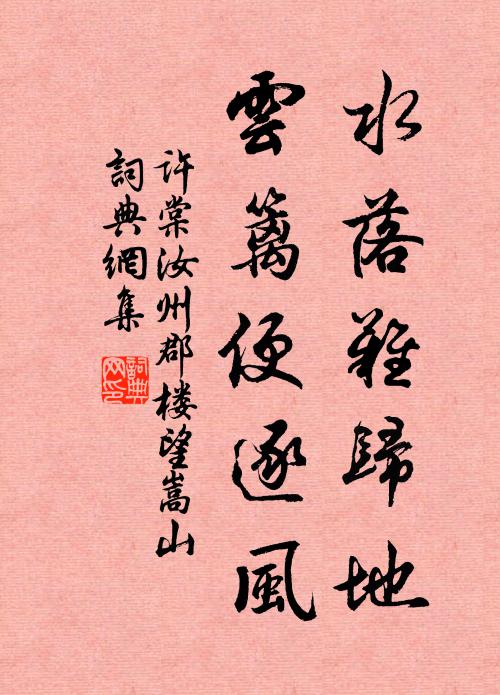 水落難歸地
雲篱便逐風
許棠汝州郡楼望嵩山
詞典網集
詞典网印